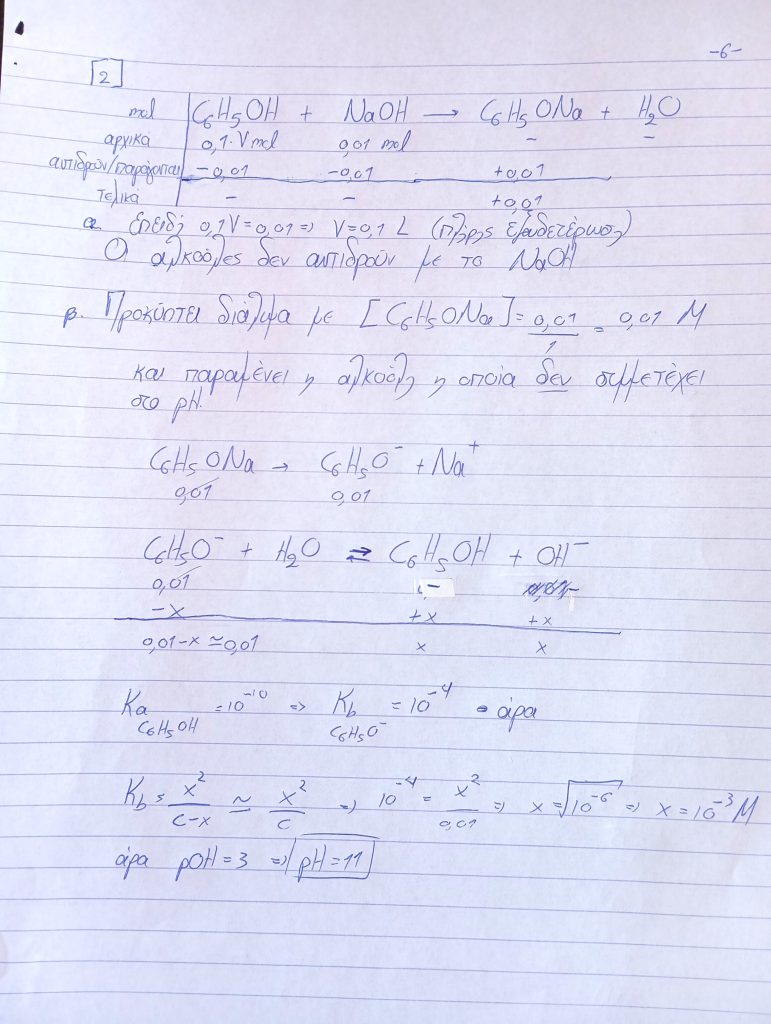 -6-
2
mol C6H5OH + NaOH → C6H5ONa + H2O
αρχικά 0,1·V mol 0,01 mol - -
αντιδρούν/παράγονται -0,01 -0,01 +0,01
τελικά - - +0,01
α. Επειδή 0,1V=0,01 => V=0,1 L (πλήρης εξουδετέρωση)
Οι αλκοόλες δεν αντιδρούν με το NaOH
β. Προκύπτει διάλυμα με [C6H5ONa] = 0,01/1 = 0,01 M
και παραμένει η αλκοόλη η οποία δεν συμμετέχει
στο pH.
C6H5ONa → C6H5O⁻ + Na⁺
0,01 0,01
C6H5O⁻ + H2O ⇄ C6H5OH + OH⁻
0,01 - -
-x +x +x
0,01-x ≃ 0,01 x x
Ka = 10⁻¹⁰ => Kb = 10⁻⁴ άρα
C6H5OH C6H5O⁻
Kb = x²/(c-x) ≃ x²/c => 10⁻⁴ = x²/0,01 => x = √10⁻⁶ => x = 10⁻³ M
άρα pOH = 3 => pH = 11